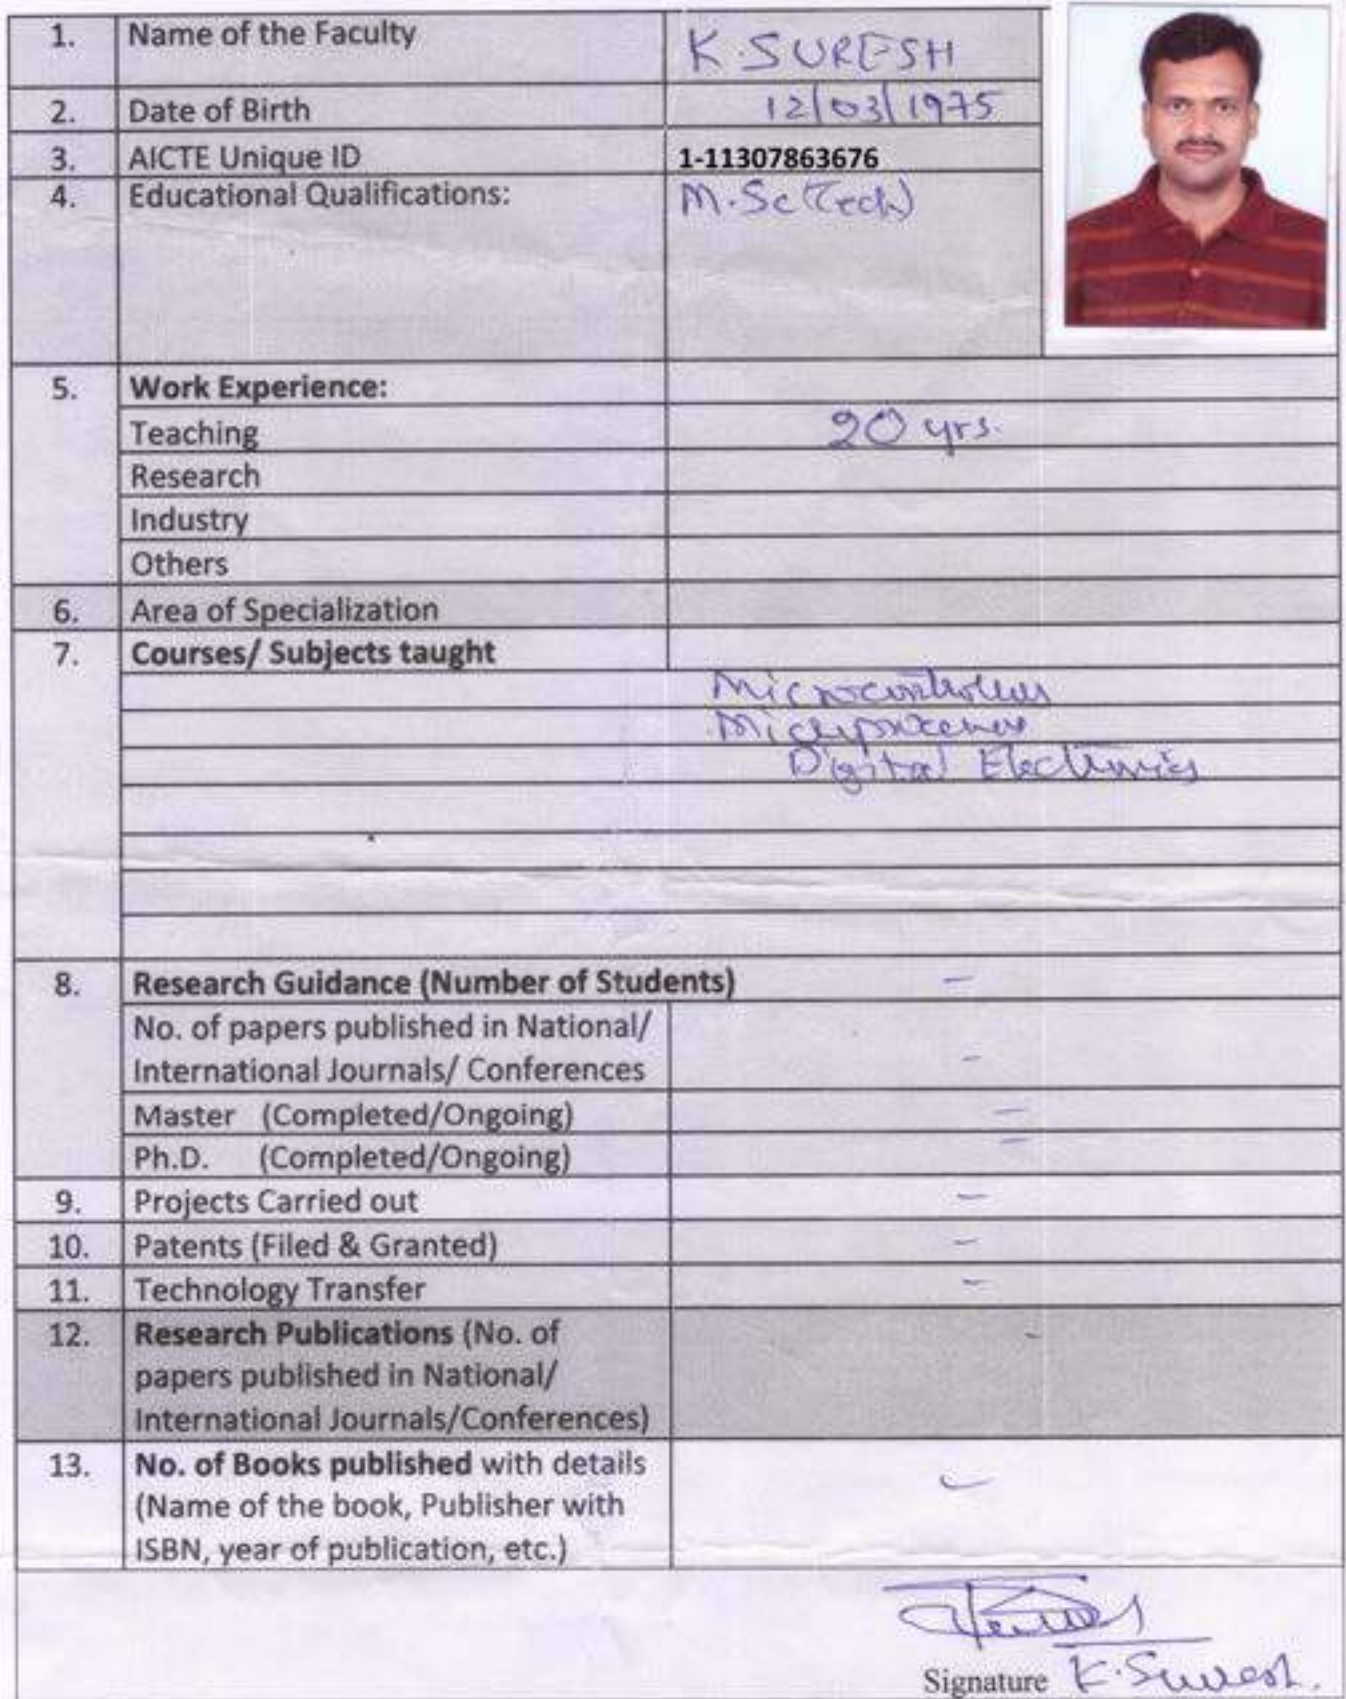 1. Name of the Faculty K. SURESH
2. Date of Birth 12/03/1975
3. AICTE Unique ID 1-11307863676
4. Educational Qualifications: M.Sc(Tech)
5. Work Experience:
Teaching 20 yrs.
Research
Industry
Others
6. Area of Specialization
7. Courses/ Subjects taught
Microcontrollers
Microprocessor
Digital Electronics
8. Research Guidance (Number of Students) -
No. of papers published in National/
International Journals/ Conferences -
Master (Completed/Ongoing) -
Ph.D. (Completed/Ongoing) -
9. Projects Carried out -
10. Patents (Filed & Granted) -
11. Technology Transfer -
12. Research Publications (No. of -
papers published in National/
International Journals/Conferences)
13. No. of Books published with details -
(Name of the book, Publisher with
ISBN, year of publication, etc.)
Signature K. Suresh.